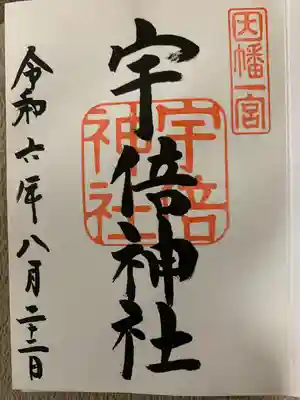 因幡一宮
宇倍神社
宇倍
神社
令和六年八月二十二日